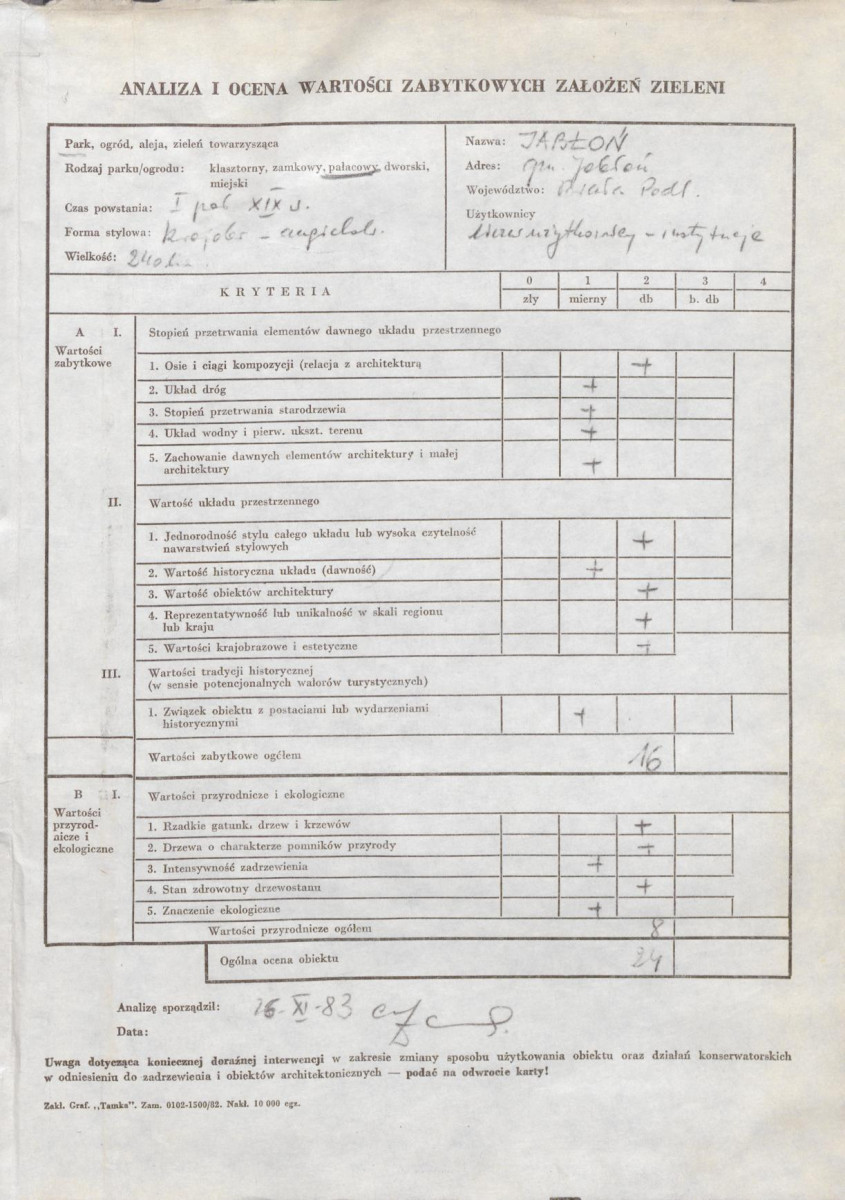 ANALIZA I OCENA WARTOŚCI ZABYTKOWYCH ZAŁOŻEŃ ZIELENI
Park, ogród, aleja, zieleń towarzysząca
Rodzaj parku/ogrodu: klasztorny, zamkowy, pałacowy, dworski,
miejski
Czas powstania: I poł XIX w.
Forma stylowa: krajobr – angielski
Wielkość:
Nazwa: JABŁOŃ
Adres: gm. Jabłoń
Województwo: Biała Podl.
Użytkownicy
– instytucje
KRYTERIA
0 1 2 3 4
zły mierny db b. db
A I. Stopień przetrwania elementów dawnego układu przestrzennego
Wartości
zabytkowe
1. Osie i ciągi kompozycji (relacja z architekturą +
2. Układ dróg +
3. Stopień przetrwania starodrzewia +
4. Układ wodny i pierw. ukszt. terenu +
5. Zachowanie dawnych elementów architektury i małej
architektury +
II. Wartość układu przestrzennego
1. Jednorodność stylu całego układu lub wysoka czytelność
nawarstwień stylowych +
2. Wartość historyczna układu (dawność) +
3. Wartość obiektów architektury +
4. Reprezentatywność lub unikalność w skali regionu
lub kraju +
5. Wartości krajobrazowe i estetyczne +
III. Wartości tradycji historycznej
(w sensie potencjonalnych walorów turystycznych)
1. Związek obiektu z postaciami lub wydarzeniami
historycznymi +
Wartości zabytkowe ogółem 16
B I. Wartości przyrodnicze i ekologiczne
Wartości
przyrod-
nicze i
ekologiczne
1. Rzadkie gatunk. drzew i krzewów +
2. Drzewa o charakterze pomników przyrody +
3. Intensywność zadrzewienia +
4. Stan zdrowotny drzewostanu +
5. Znaczenie ekologiczne +
Wartości przyrodnicze ogółem 8
Ogólna ocena obiektu 24
Analizę sporządził: XI-83
Data:
Uwaga dotycząca koniecznej doraźnej interwencji w zakresie zmiany sposobu użytkowania obiektu oraz działań konserwatorskich
w odniesieniu do zadrzewienia i obiektów architektonicznych — podać na odwrocie karty!
Zakł. Graf. „Tamka”. Zam. 0102-1500/82. Nakł. 10 000 egz.